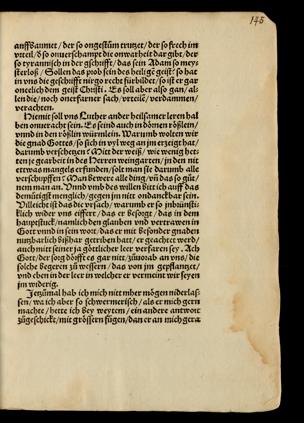 145
auffbaumet / der so ongestům trutzet / der so frech im
vrteil / d so onuerschampt die onwarheit dar gibt / der
so tyrannisch in der gschrifft / das sein Adam so mey-
sterloß / Sollen das prob sein des heiligē geist? so hat
in vns die geschrifft nirgo recht fürbildet / so ist er gar
onelich dem geist Christi. Es soll aber also gan / al-
len die / noch onerfarner sach / vrteilē / verdammen /
verachten.
Hiemit soll vns Luther ander heilsamer leren hal
ben onueracht sein. Es seind auch in dörnen rößlein /
vnnd in den rößlin würmlein. Warumb wolten wir
die gnad Gottes / so sich in vyl weg an im erzeigt hat /
darumb verschetzen? Mit der weiß / wie wenig het-
ten je gearbeit in des Herren weingarten / in den nit
ettwas mangels erfunden / solt man sie darumb alle
verschupffen? Man bewere alle ding / vñ das so gůt /
nem man an. Vnnd vmb des willen bitt ich auff das
demůtigist menglich / gegen im nitt ondanckbar sein.
Villeicht ist das die vrsach / warumb er so inbünsti-
klich wider vns eiffert / das er besorgt / das in dem
hauptstuck / namlich den glauben vnd vertrawen in
Gott vnnd in sein wort / das er mit besonder gnaden
nutzbarlich bißhar getriben hatt / er geachtet werd /
auch mitt seiner ja göttlicher leer verfaren sey. Ach
Gott / der sorg dörfft es gar nitt / zůuorab an vns / die
solche begeren zů wessern / das von im gepflantzet /
vnd eben in der leer in welcher er vermeint wir seyen
im widerig.
Jetzůmal hab ich mich nitt mher mögen niderlas-
sen / wa ich aber so schwermerisch / als er mich gern
machte / hette ich bey weytem / ein andere antwort
zůgeschickt / mit grössern fůgen / dan er an mich gera